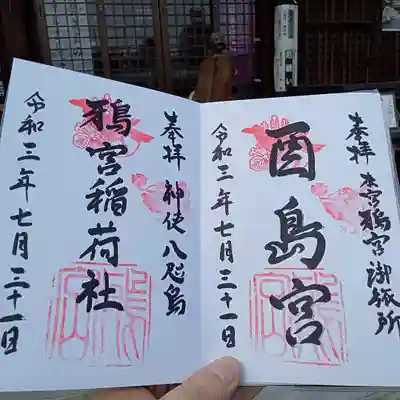 奉拝 本宮鴉宮御旅所
酉島宮
令和三年七月三十一日
奉拝 神使 八咫烏
鴉宮稲荷社
令和三年七月三十一日